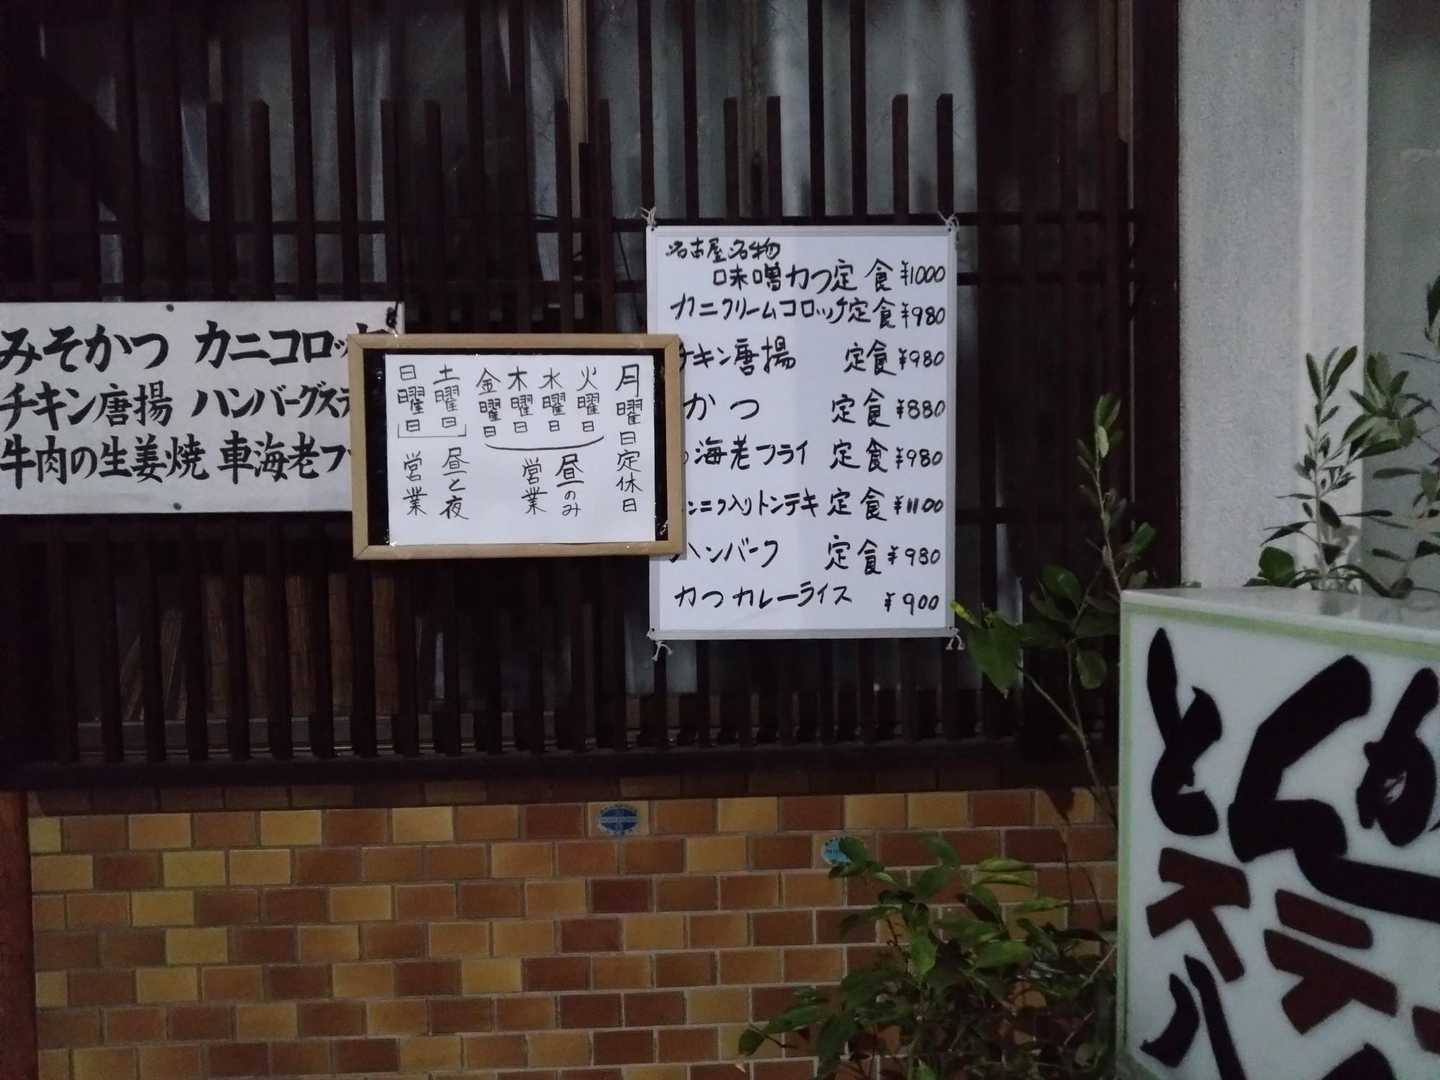 みそかつ カニコロッ
チキン唐揚 ハンバーグステ
牛肉の生姜焼 車海老フ
月曜日定休日
火曜日
水曜日
木曜日
金曜日
昼のみ
営業
土曜日
日曜日
昼と夜
営業
名古屋名物
味噌カつ定食¥1000
カニクリームコロッケ定食¥980
チキン唐揚 定食¥980
かつ 定食¥880
海老フライ 定食¥980
ンニク入りトンテキ定食¥1100
ハンバーク 定食¥980
カつカレーライス ¥900
とんか
ステ